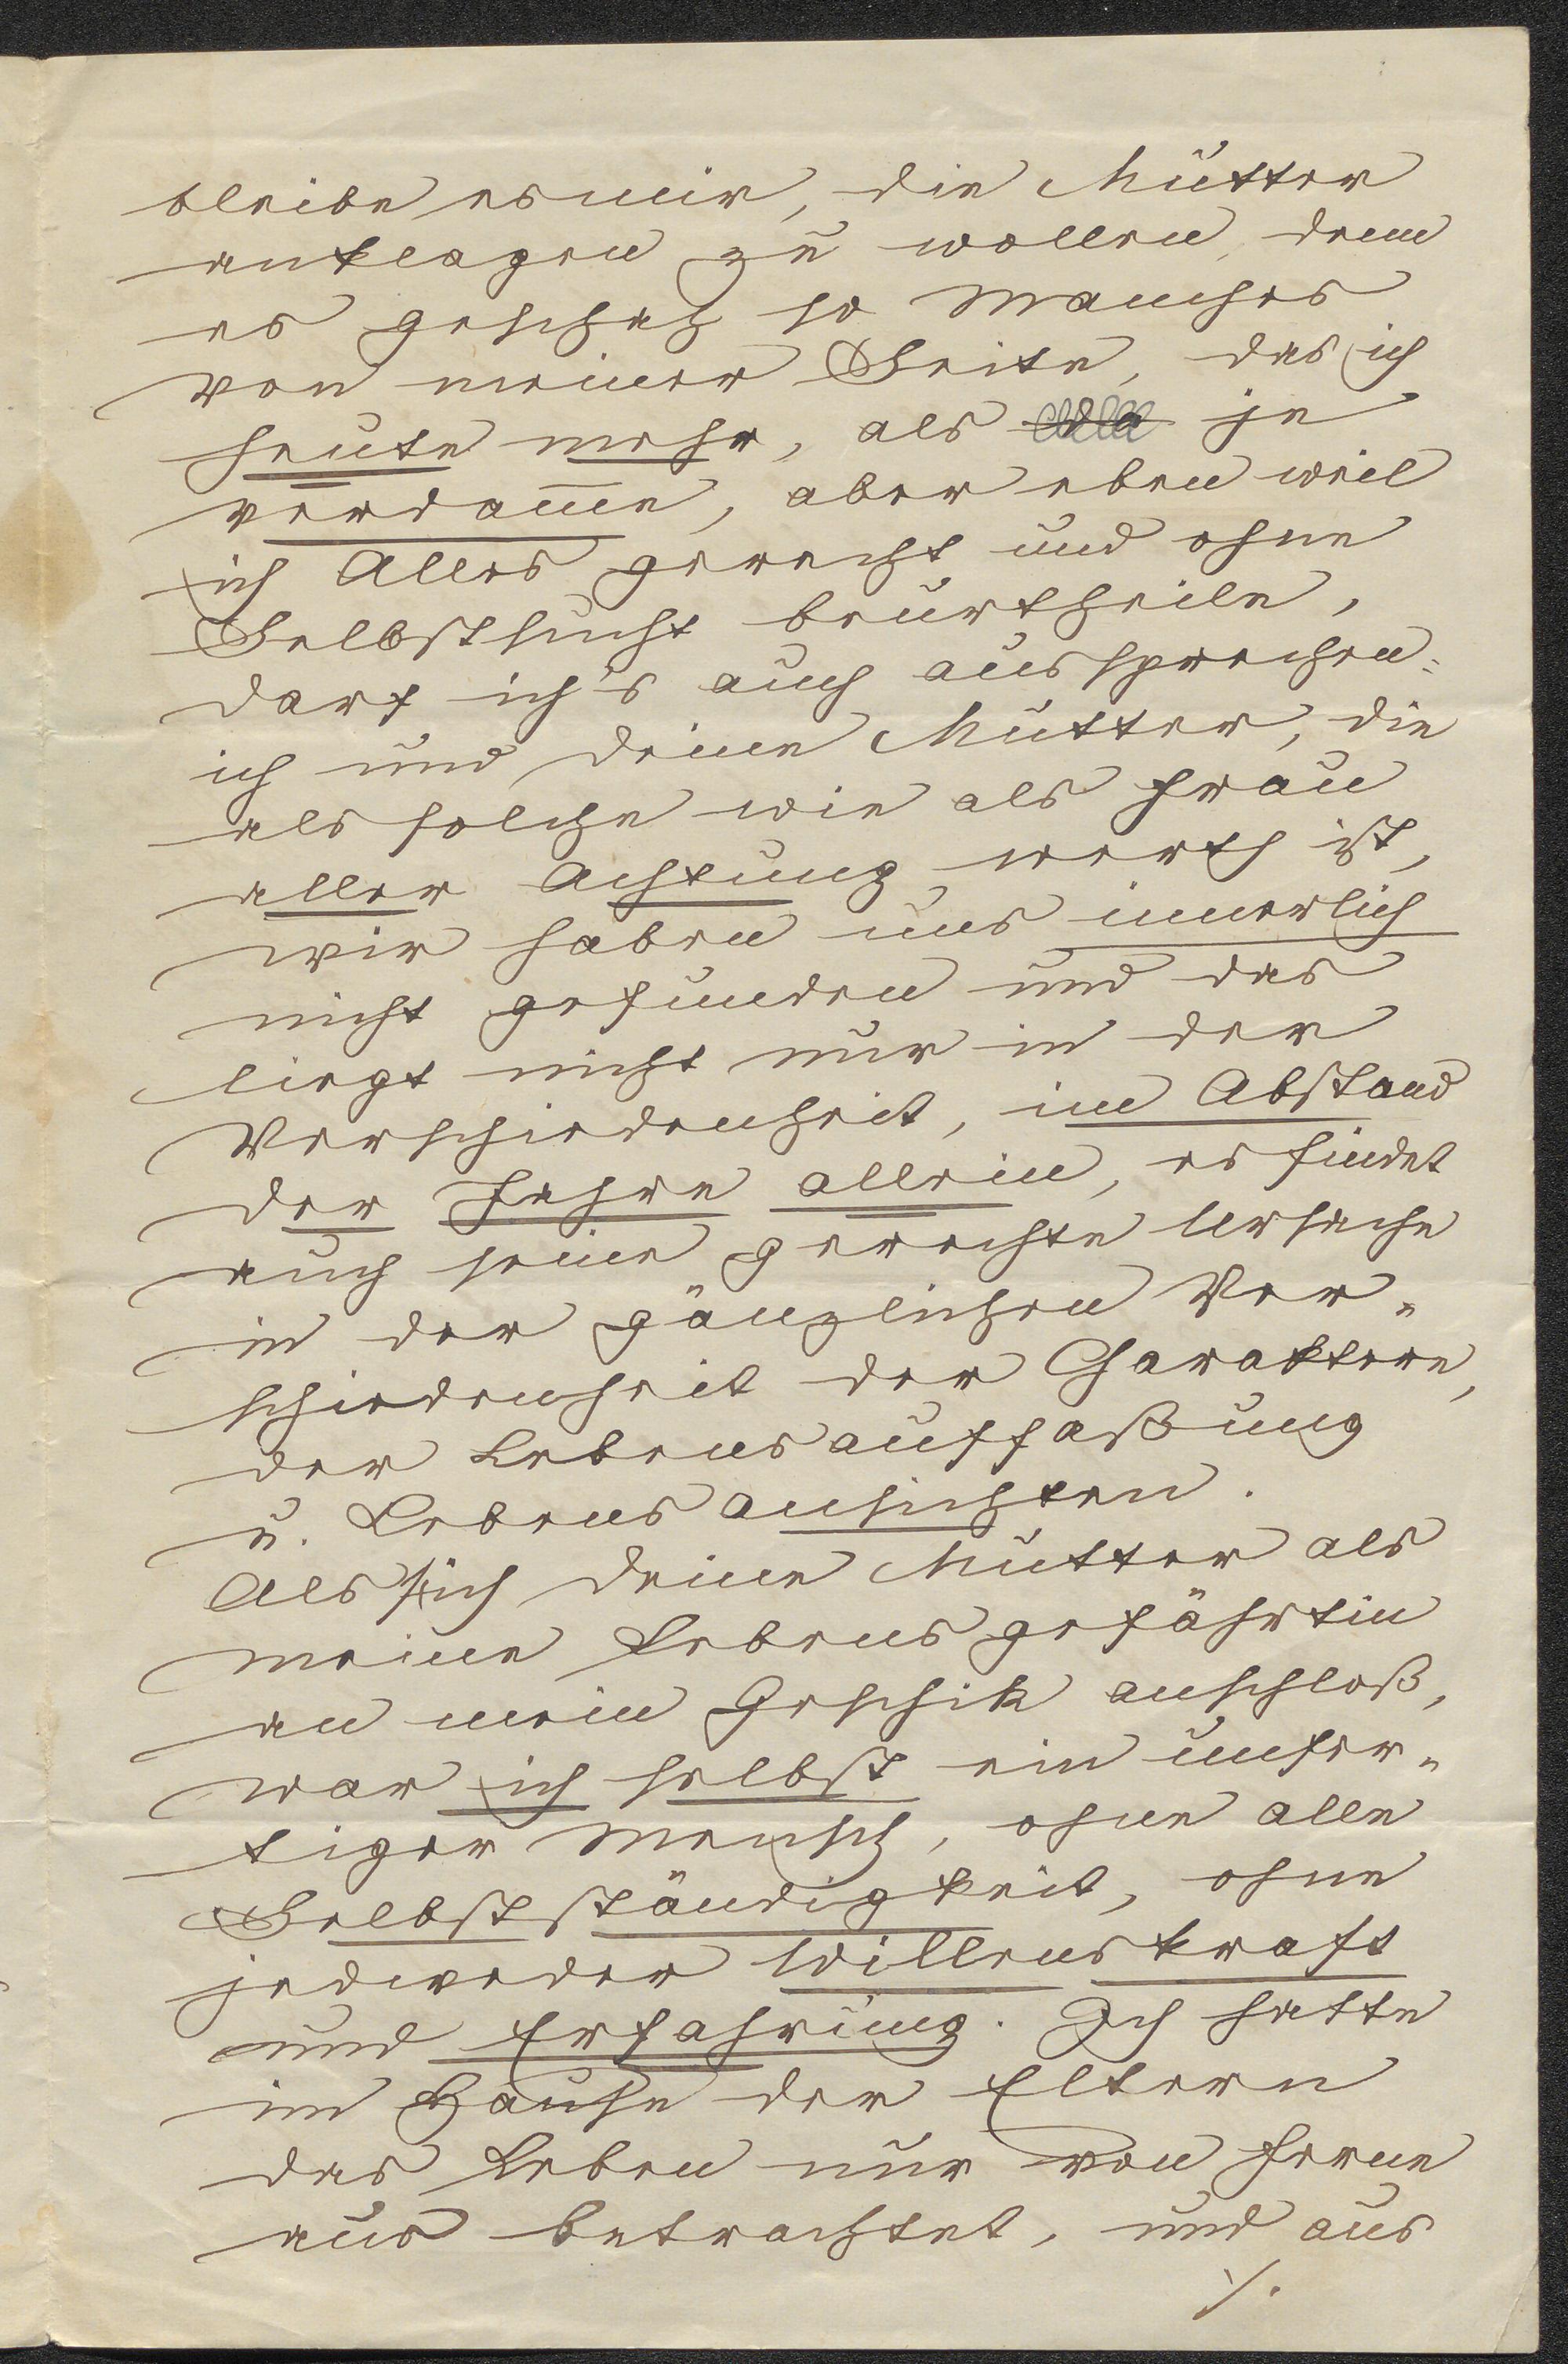 bleibe es mir, die Mutter
anklagen zu wollen, denn
es geschah so Manches
von meiner Seite, das ich
heute mehr, als je
verdam̄e, aber eben weil
ich Alles gerecht und ohne
Selbstsucht beurtheile,
darf ich's auch aussprechen:
ich und deine Mutter, die
als solche wie als Frau
aller Achtung werth ist,
wir haben uns innerlich
nicht gefunden und das
liegt nicht nur in der
Verschiedenheit, im Abstand
der Jahre allein, es findet
auch seine gerechte Ursache
in der gänzlichen Ver-
schiedenheit der Charaktere,
der Lebensauffaßung
u. Lebensansichten.
Als sich deine Mutter als
meine Lebensgefährtin
an mein Geschik anschloß,
war ich selbst ein unfer-
tiger Mensch, ohne alle
Selbstständigkeit, ohne
jedweder Willenskraft
und Erfahrung. Ich hatte
im Hause der Eltern
das Leben nur von Ferne
aus betrachtet, und aus
./.